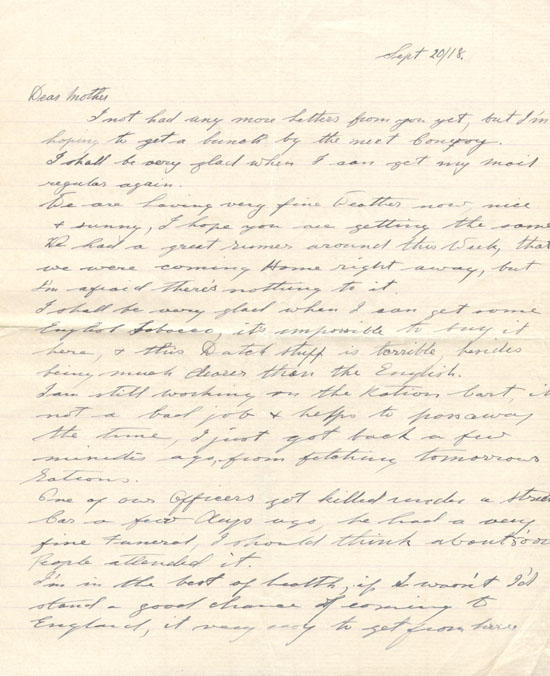 Sept 20/18.
Dear Mother
I not had any more letters from you yet, but I'm
hoping to get a bunch by the next Convoy.
I shall be very glad when I can get my mail
regular again.
We are having very fine Weather now, nice
& sunny, I hope you are getting the same
We had a great rumor around this Week, that
we were coming Home right away, but
I'm afraid there's nothing to it.
I shall be very glad when I can get some
English Tobacco, it's impossible to buy it
here, & this Dutch stuff is terrible, besides
being much dearer than the English.
I am still working on the Ration Cart, it
not a bad job & helps to pass away
the time, I just got back a few
minutes ago, from fetching tomorrows
Rations.
One of our Officers got killed under a Street
Car a few days ago, he had a very
fine Funeral, I should think about
People attended it.
I'm in the best of health, if I wasn't I'd
stand a good chance of coming to
England, it very easy to get from here